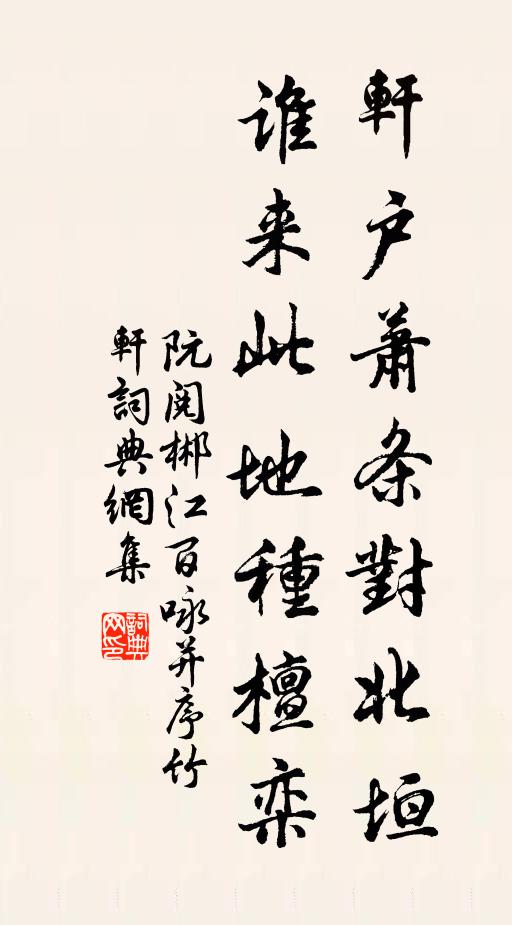 軒户蕭条對北垣
谁来此地種檀栾
阮阅郴江百咏并序竹
軒詞典網集
詞典
网印